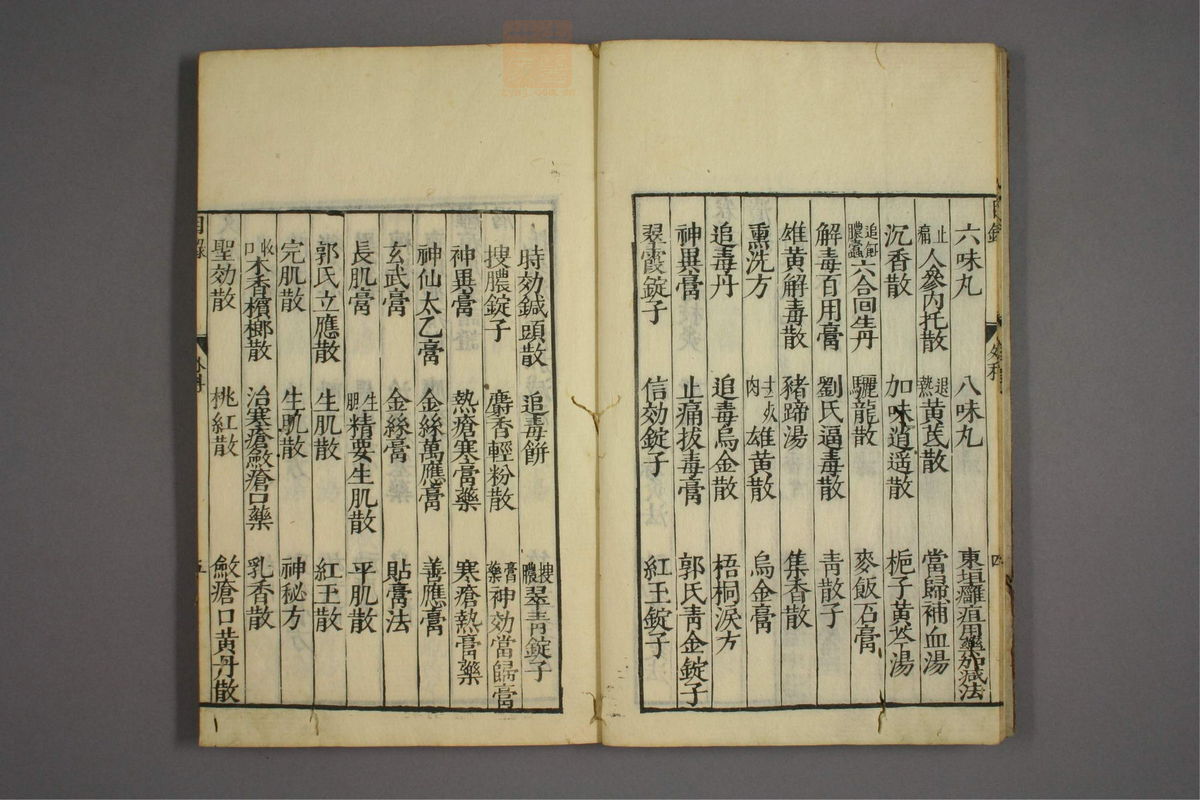 六味丸 八味丸 東垣癰疽用藥加減法
止痛人參內托散 退熱黃芪散 當歸補血湯
沉香散 加味逍遥散 梔子黃芩湯
追解膿蠱六合回生丹 驪龍散 麥飯石膏
解毒百用膏 劉氏逼毒散 青散子
雄黃解毒散 豬蹄湯 集香散
熏洗方 肉雄黃散 烏金膏
追毒丹 追毒烏金散 梧桐淚方
神異膏 止痛拔毒膏 郭氏青金錠子
翠霞錠子 信効錠子 紅玉錠子
目錄 外科 四
時効鍼頭散 追毒餅 搜膿翠青錠子
搜膿錠子 麝香輕粉散 膏藥神効當歸膏
神異膏 熱瘡寒膏藥 寒瘡熱膏藥
神仙太乙膏 金絲萬應膏 善應膏
玄武膏 金絲膏 貼膏法
長肌膏 生肌精要生肌散 平肌散
郭氏立應散 生肌散 紅玉散
完肌散 生肌散 神秘方
木香檳榔散 治寒瘡斂瘡口藥 乳香散
聖効散 桃紅散 斂瘡口黃丹散
目錄 外科 五